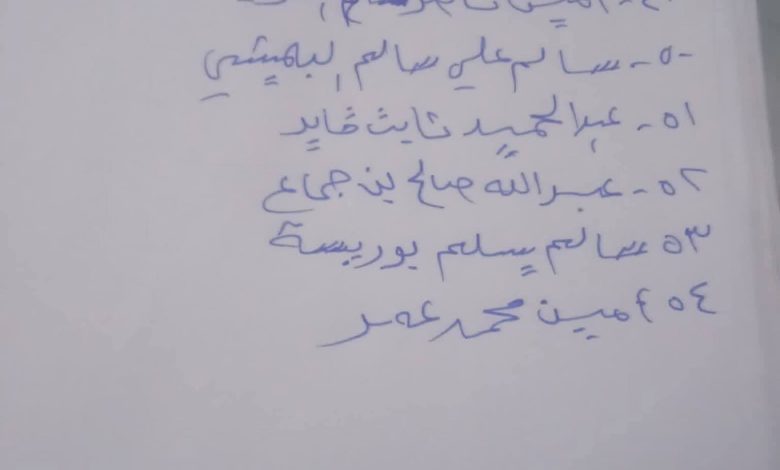 ٥٠- سالم علي سالم البهيشي
٥١- عبدالحميد ثابت قايد
٥٢- عبدالله صالح بن جماع
٥٣ سالم يسلم بوريسة
٥٤ أمين محمد عمر